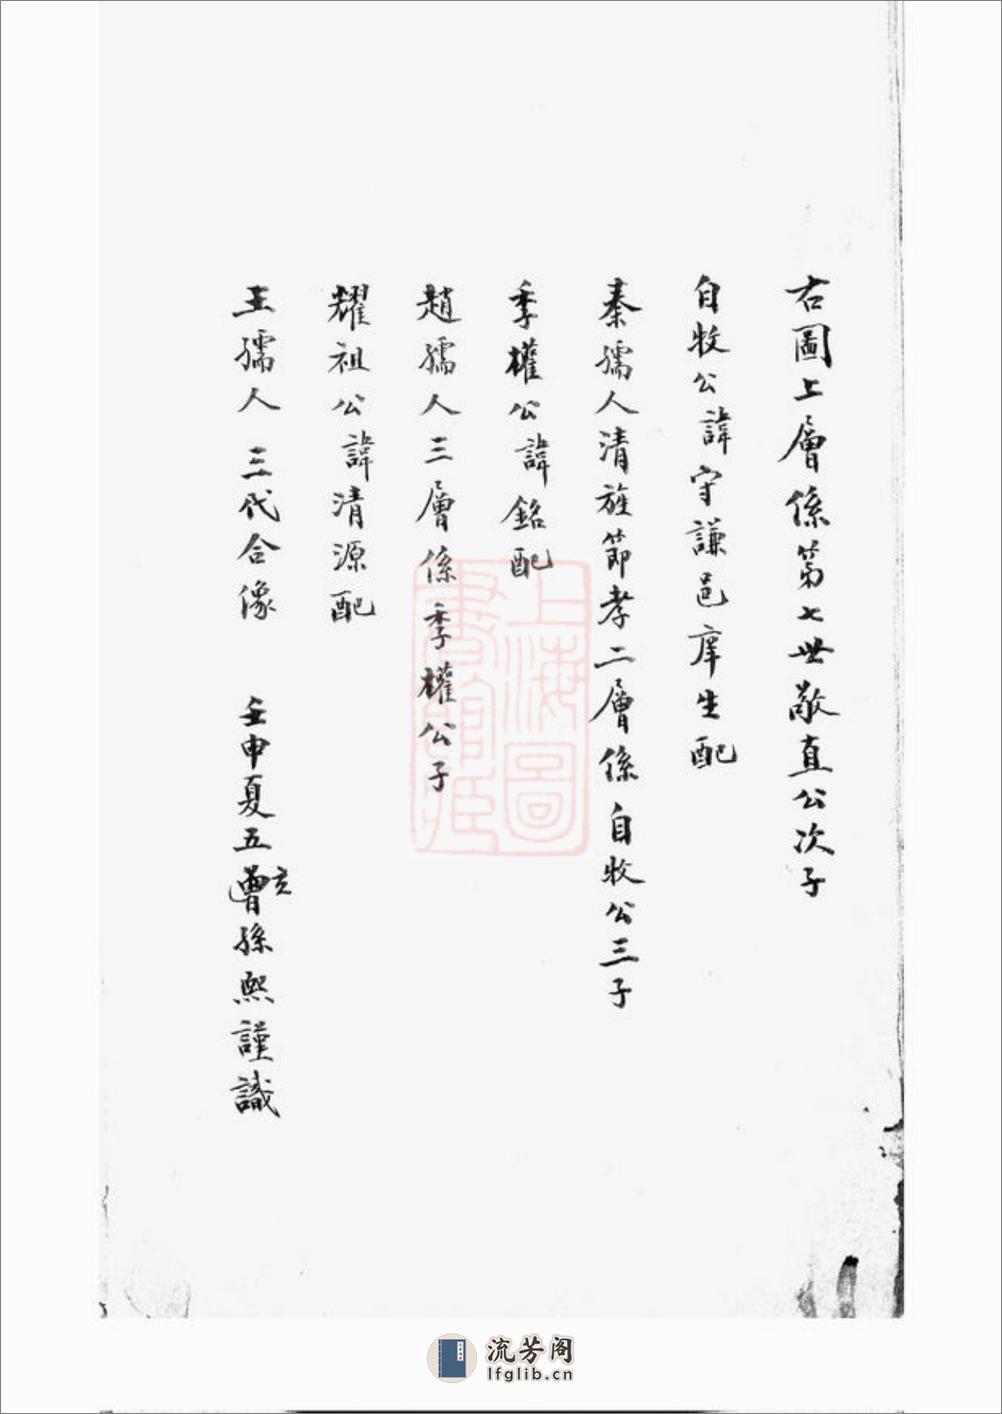 右圖上層係第七世敬直公次子
自牧公諱守謙邑庠生配
秦孺人清旌節孝二層係自牧公三子
季權公諱銘配
趙孺人三層係季權公子
耀祖公諱清源配
王孺人三代合像 壬申夏五曾玄孫熙謹識
上海圖書館藏
流芳阁
lfglib.cn